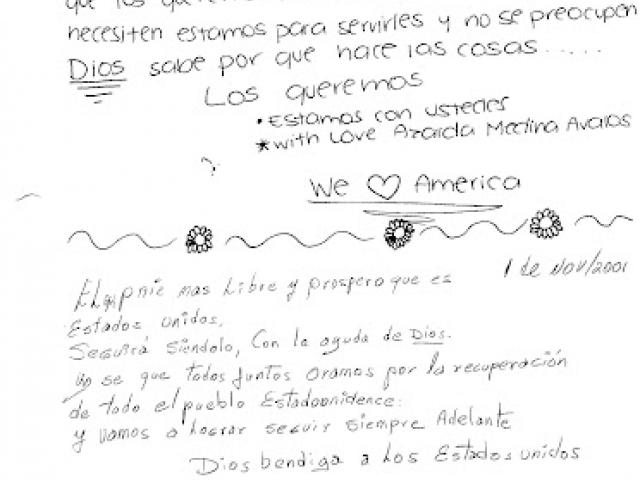 que los
necesiten estamos para servirles y no se preocupen
Dios sabe por que hace las cosas.....
Los queremos
• Estamos con ustedes
* with Love Azaida Medina Avalos
We ♡ America
1 de NOV/2001
mas Libre y prospero que es
Estados Unidos,
Seguirá Siendolo, Con la ayuda de Dios.
yo se que todos juntos oramos por la recuperación
de todo el pueblo Estadoonidence.
y vamos a lograr seguir siempre Adelante
Dios bendiga a los Estados unidos